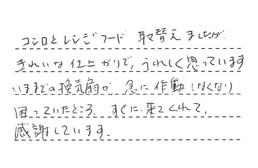 コンロとレンジフード 取替えましたが
きれいな仕上がりで、うれしく思っています
いままでの換気扇が 急に作動しなくなり
困っていたところ、すぐに来てくれて、
感謝しています。